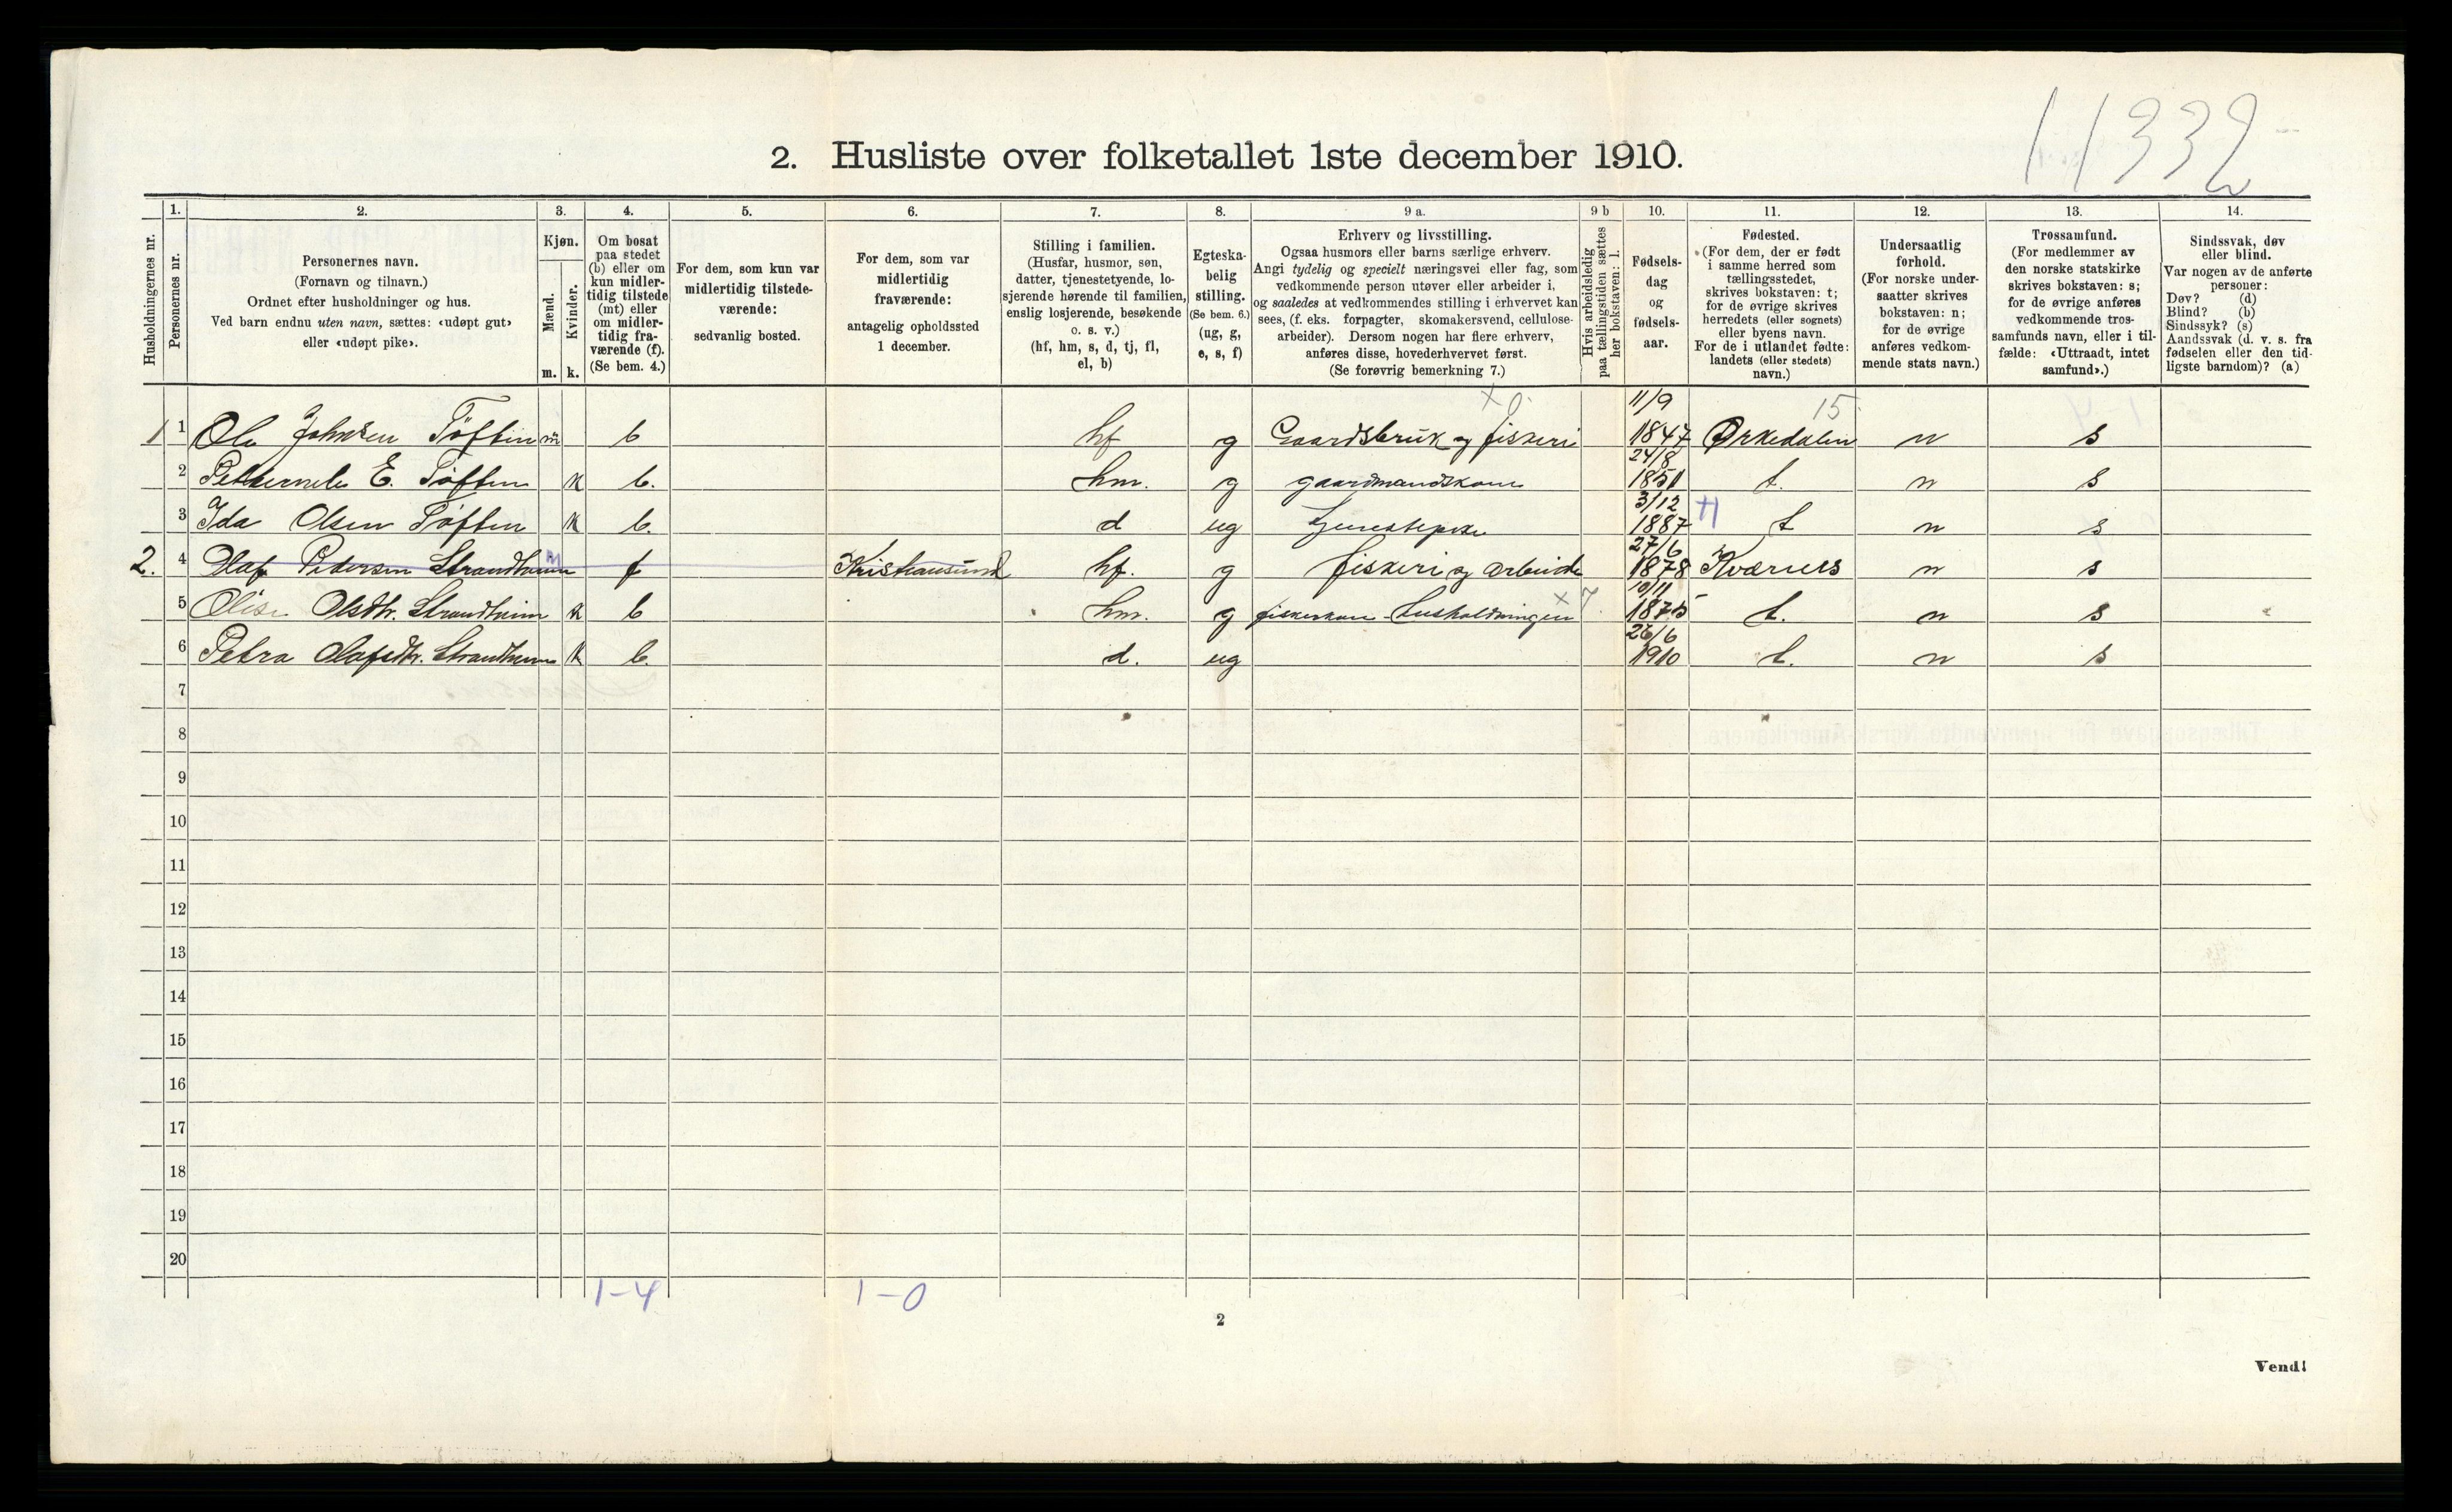 11332
2. Husliste over folketallet 1ste december 1910.
Husholdningernes nr.
1. Personernes nr.
2. Personernes navn.
(Fornavn og tilnavn.)
Ordnet efter husholdninger og hus.
Ved barn endnu uten navn, sættes: «udøpt gut»
eller «udøpt pike».
3. Kjøn.
Mænd. Kvinder.
m. k.
4. Om bosat
paa stedet
(b) eller om
kun midler-
tidig tilstede
(mt) eller
om midler-
tidig fra-
værende (f).
(Se bem. 4.)
5. For dem, som kun var
midlertidig tilstede-
værende:
sedvanlig bosted.
6. For dem, som var
midlertidig
fraværende:
antagelig opholdssted
1 december.
7. Stilling i familien.
(Husfar, husmor, søn,
datter, tjenestetyende, lo-
sjerende hørende til familien,
enslig losjerende, besøkende
o. s. v.)
(hf, hm, s, d, tj, fl,
el, b)
8. Egteska-
belig
stilling.
(Se bem. 6.)
(ug, g,
e, s, f)
9 a. Erhverv og livsstilling.
Ogsaa husmors eller barns særlige erhverv.
Angi tydelig og specielt næringsvei eller fag, som
vedkommende person utøver eller arbeider i,
og saaledes at vedkommendes stilling i erhvervet kan
sees, (f. eks. forpagter, skomakersvend, cellulose-
arbeider). Dersom nogen har flere erhverv,
anføres disse, hovederhvervet først.
(Se forøvrig bemerkning 7.)
9 b Hvis arbeidsledig
paa tællingstiden sættes
her bokstaven: l.
10. Fødsels-
dag
og
fødsels-
aar.
11. Fødested.
(For dem, der er født
i samme herred som
tællingsstedet,
skrives bokstaven: t;
for de øvrige skrives
herredets (eller sognets)
eller byens navn.
For de i utlandet fødte:
landets (eller stedets)
navn.)
12. Undersaatlig
forhold.
(For norske under-
saatter skrives
bokstaven: n;
for de øvrige
anføres vedkom-
mende stats navn.)
13. Trossamfund.
(For medlemmer av
den norske statskirke
skrives bokstaven: s;
for de øvrige anføres
vedkommende tros-
samfunds navn, eller i til-
fælde: «Uttraadt, intet
samfund».)
14. Sindssvak, døv
eller blind.
Var nogen av de anførte
personer:
Døv? (d)
Blind? (b)
Sindssyk? (s)
Aandssvak (d. v. s. fra
fødselen eller den tid-
ligste barndom)? (a)
x 0. 11/9 15
1 1 Ole Johnsen Tøften m b hf g Gaardsbruk og fiskeri 1847 Ørkedalen n s
24/8
2 E. Tøften k b. hm. g gaardmandskone 1851 t. n s
3/12
3 Ida Olsen Tøften k b. d ug tjenestepike 1887 t n s
27/6
2. 4 Olaf Pedersen Strandheim m f Kristiansund hf. g fiskeri og arbeide 1878 Kværnes n s
10/11
5 Olise Olsdtr. Strandheim k b hm. g fiskerkone - husholdningen x 7. 1875 t. n s
26/6
6 Petra Olafsdtr. Strandheim k b. d. ug 1910 t. n s
7
8
9
10
11
12
13
14
15
16
17
18
19
20
1-4 1-0
2
Vend!